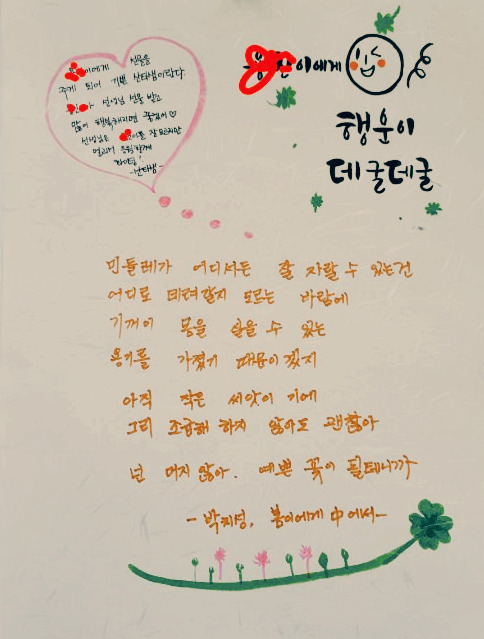 이에게 선물을
주게 되어 기쁜 산타쌤이란다.
선생님 선물 받고
많이 행복해지면 좋겠어♡
선생님은 잘 모르지만
멀리서 응원할게
화이팅!
-산타쌤-
이에게
행운이
데굴데굴
민들레가 어디서든 잘 자랄 수 있는건
어디로 데려갈지 모르는 바람에
기꺼이 몸을 실을 수 있는
용기를 가졌기 때문이겠지
아직 작은 씨앗이기에
그리 조급해 하지 않아도 괜찮아
넌 머지않아. 예쁜 꽃이 될테니까
-박치성, 봄이에게 中에서-